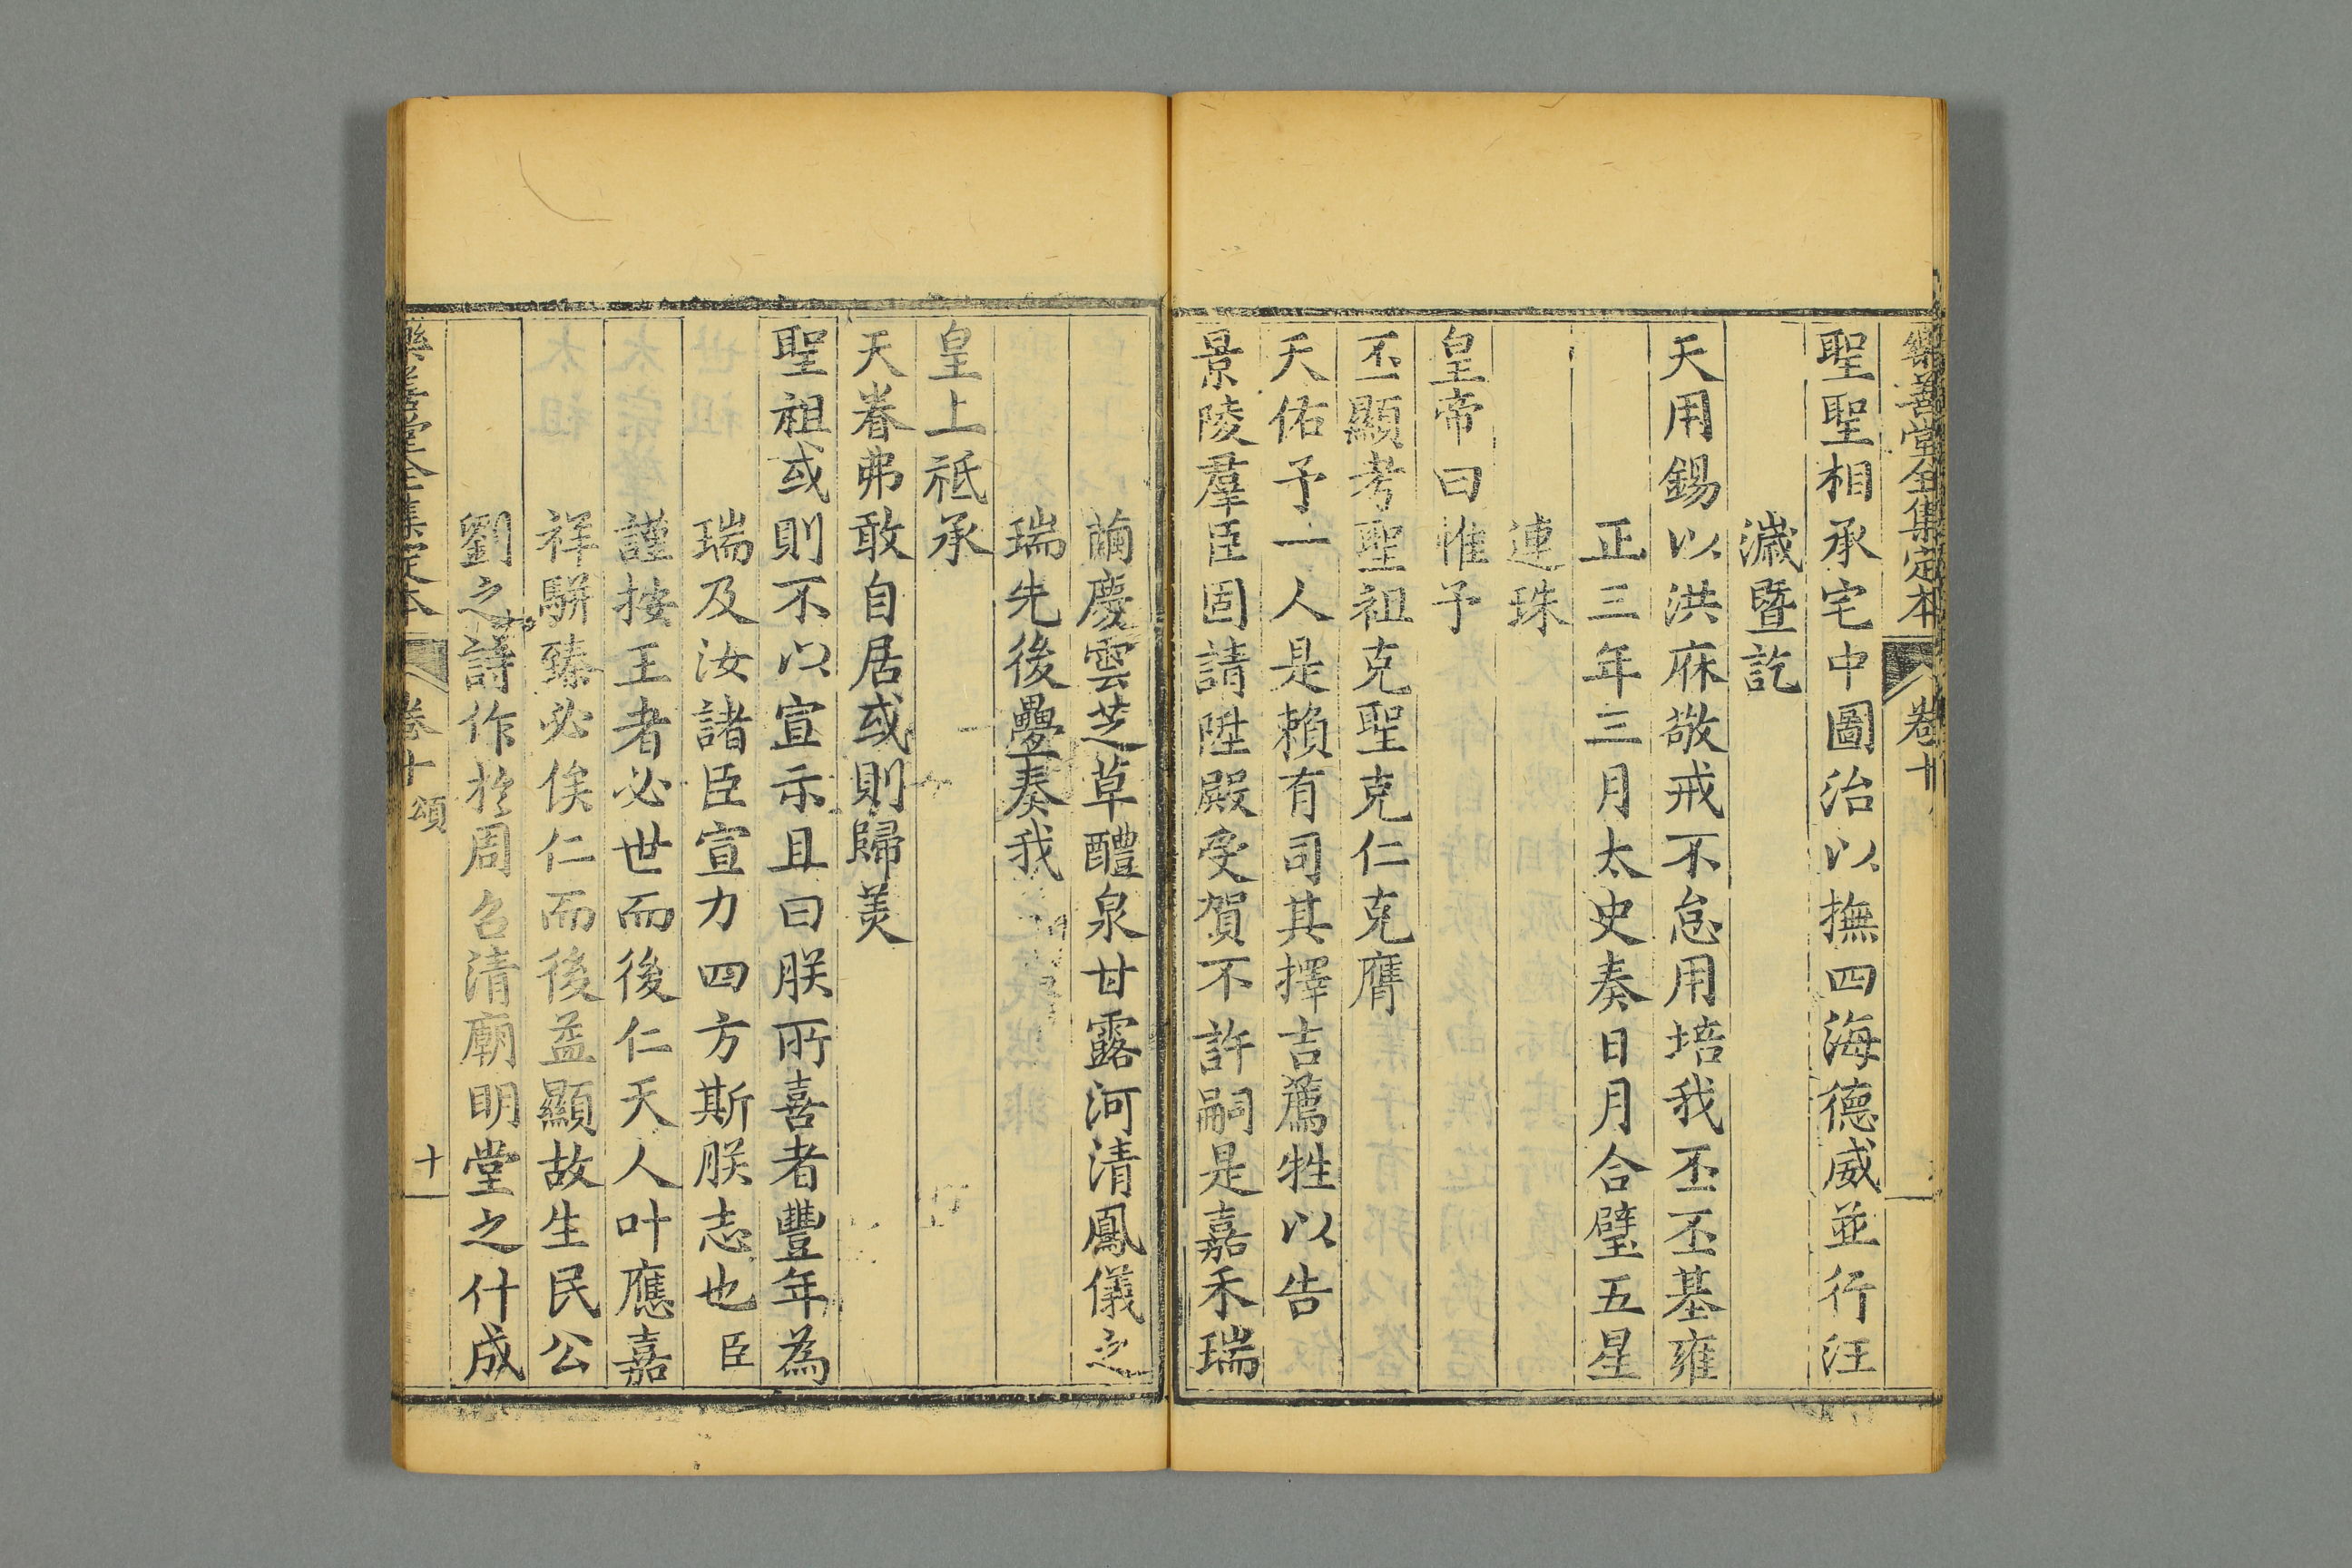 樂善堂全集定本 卷十
聖聖相承宅中圖治以撫四海德威並行汪
濊暨訖
天用錫以洪庥敬戒不怠用培我丕丕基雍
正三年三月太史奏日月合璧五星
連珠
皇帝曰惟予
丕顯考聖祖克聖克仁克膺
天佑予一人是賴有司其擇吉薦牲以告
景陵羣臣固請陞殿受賀不許嗣是嘉禾瑞
繭慶雲芝草醴泉甘露河清鳳儀之
瑞先後疊奏我
皇上祗承
天眷弗敢自居或則歸美
聖祖或則不以宣示且曰朕所喜者豐年為
瑞及汝諸臣宣力四方斯朕志也臣
謹按王者必世而後仁天人叶應嘉
祥駢臻必俟仁而後益顯故生民公
劉之詩作於周召清廟明堂之什成
樂善堂全集定本 卷十 頌 十